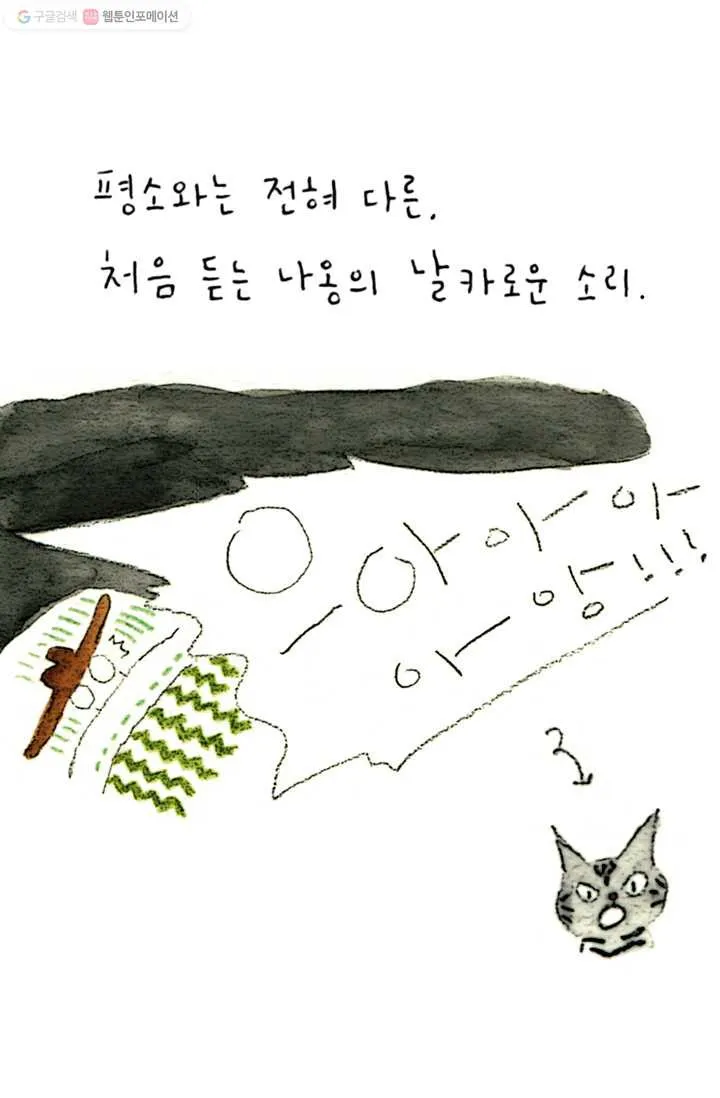 구글검색 웹툰인포메이션
평소와는 전혀 다른,
처음 듣는 나옹의 날카로운 소리.
으아아아
아앙!!!